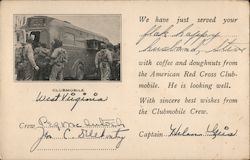 We have just served your
flak happy
husband, Steve
with coffee and doughnuts from
the American Red Cross Club-
mobile. He is looking well.
With sincere best wishes from
the Clubmobile Crew.
CLUBMOBILE
West Virginia
Crew
Captain Helen